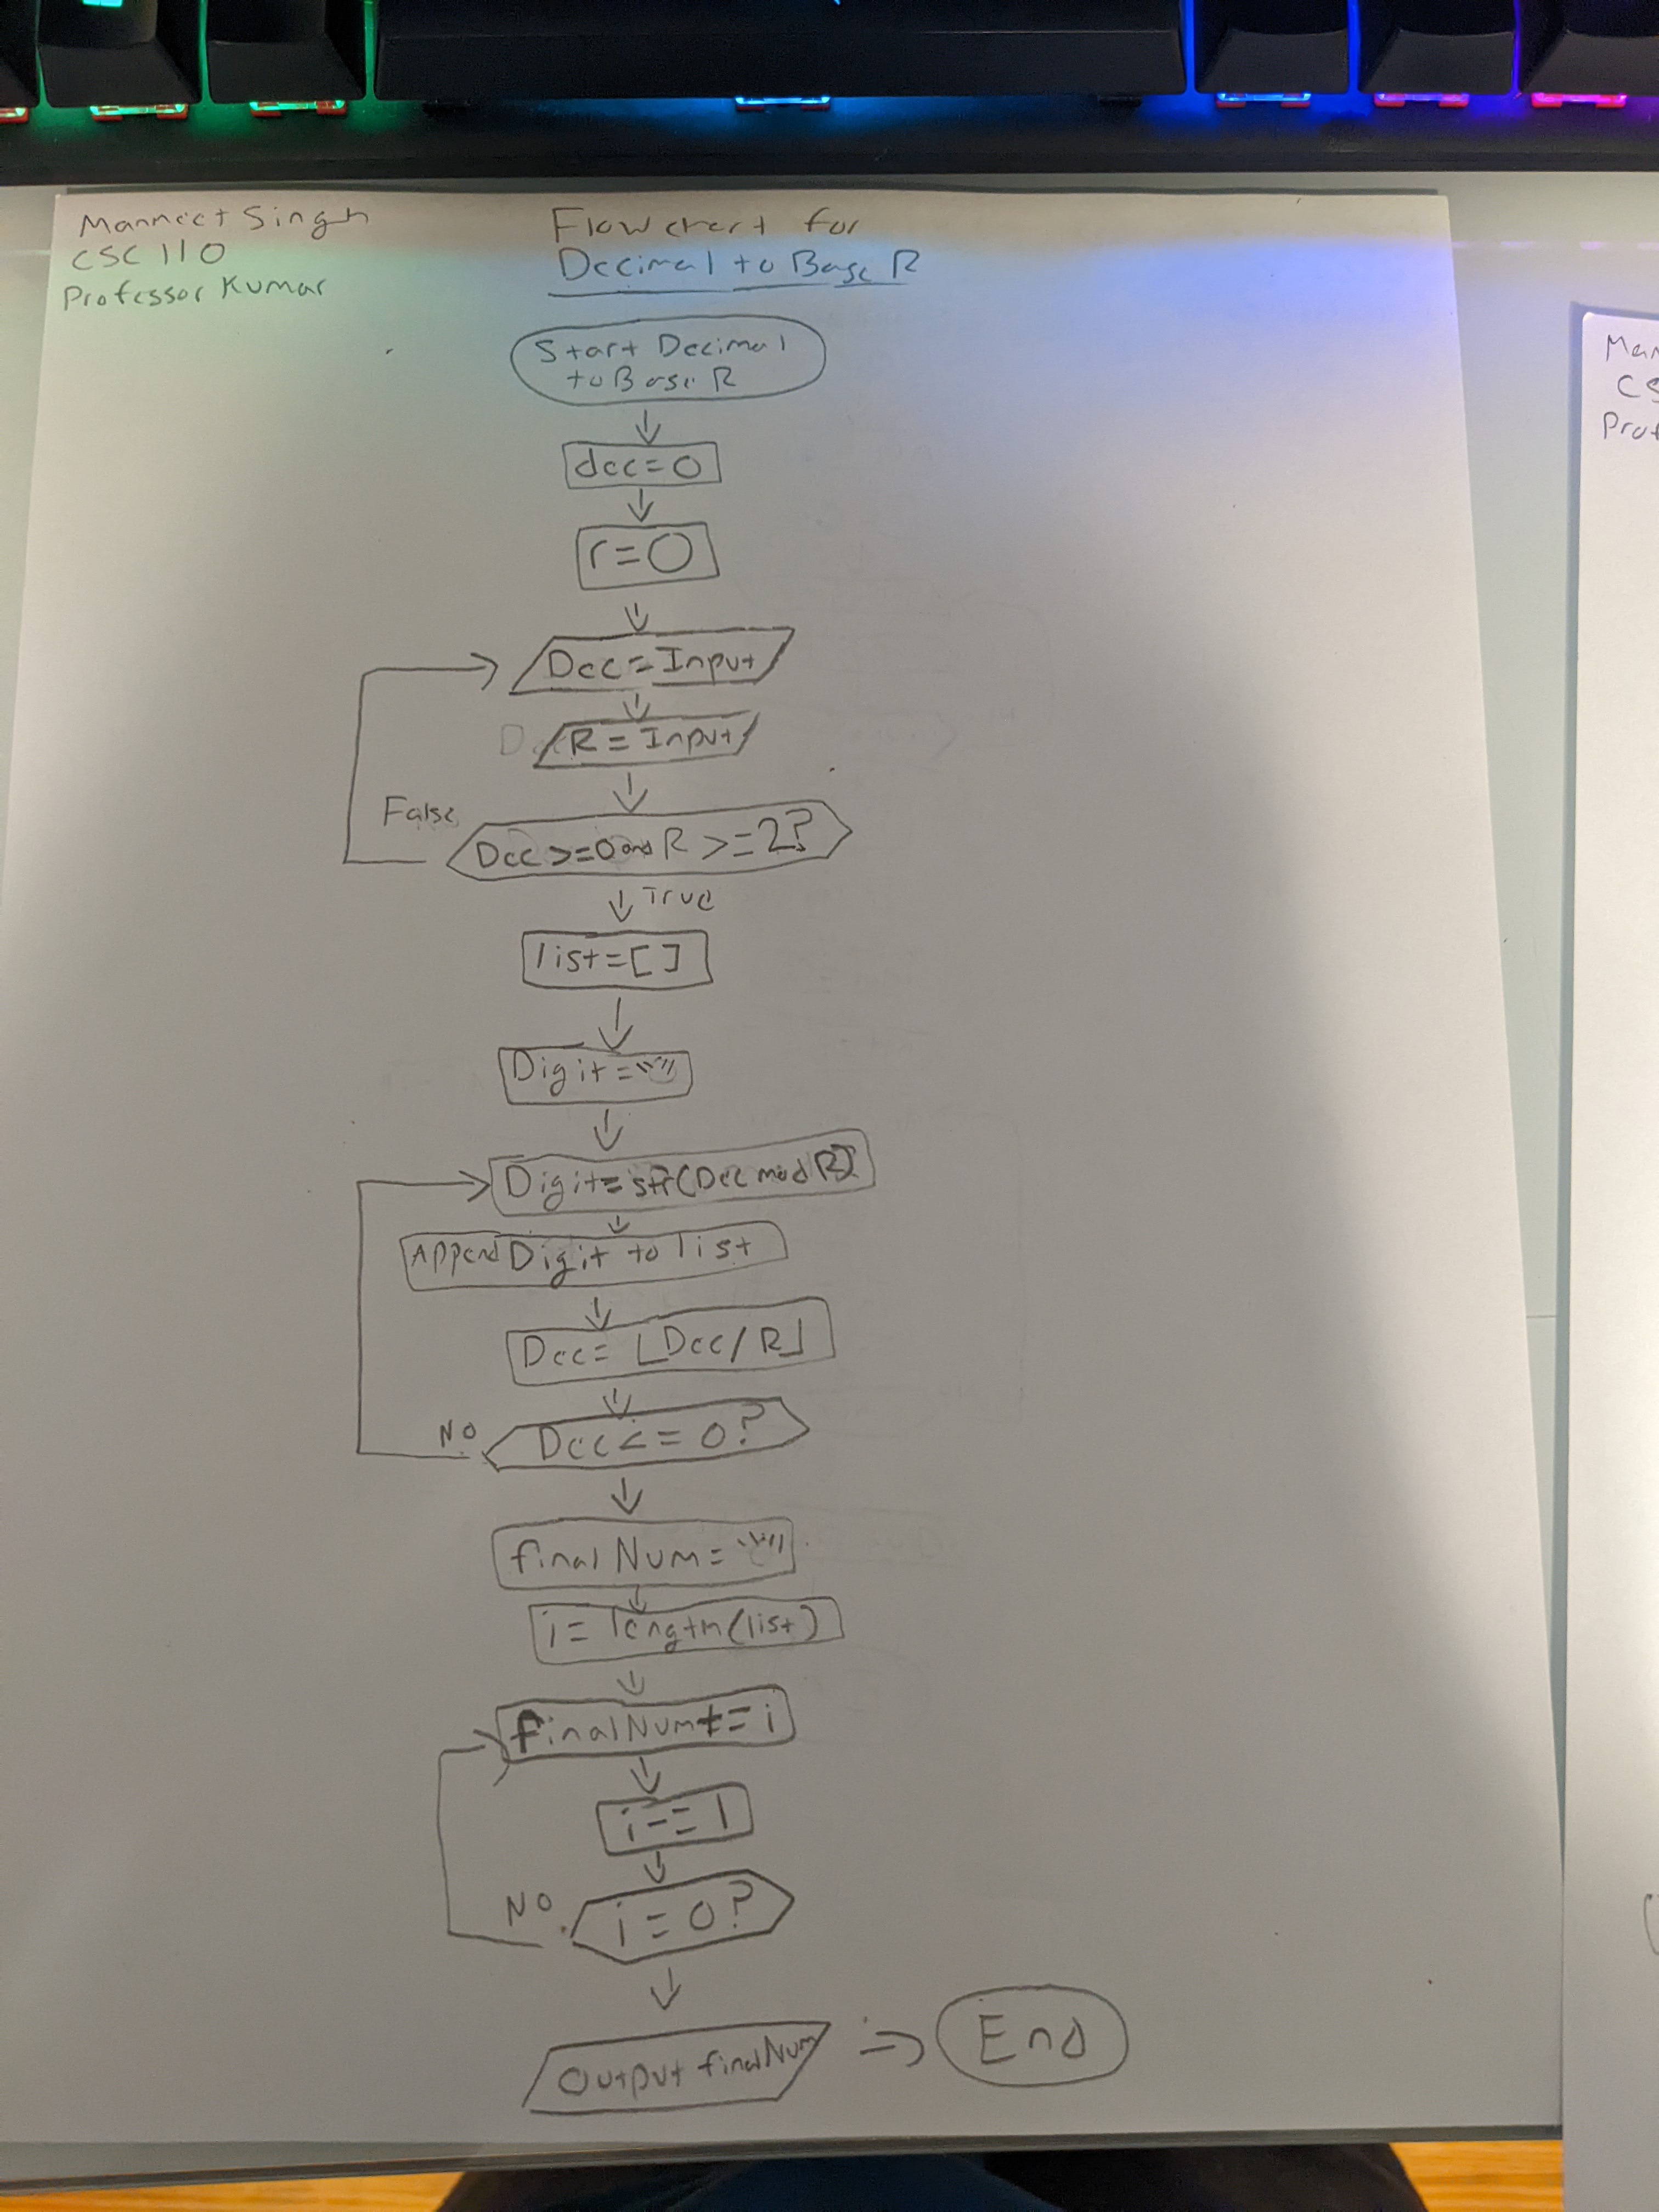 Manmeet Singh
CSC 110
Professor Kumar
Flowchart for
Decimal to Base R
Start Decimal
to Base R
dec=0
r=0
Dec=Input
R=Input
False
Dec>=0 and R>=2?
True
list=[]
Digit=""
Digit=str(Dec mod R)
Append Digit to list
Dec=⌊Dec/R⌋
No
Dec<=0?
finalNum=""
i=length(list)
finalNum+=i
i-=1
No
i=0?
Output finalNum
End
Man
CS
Prof